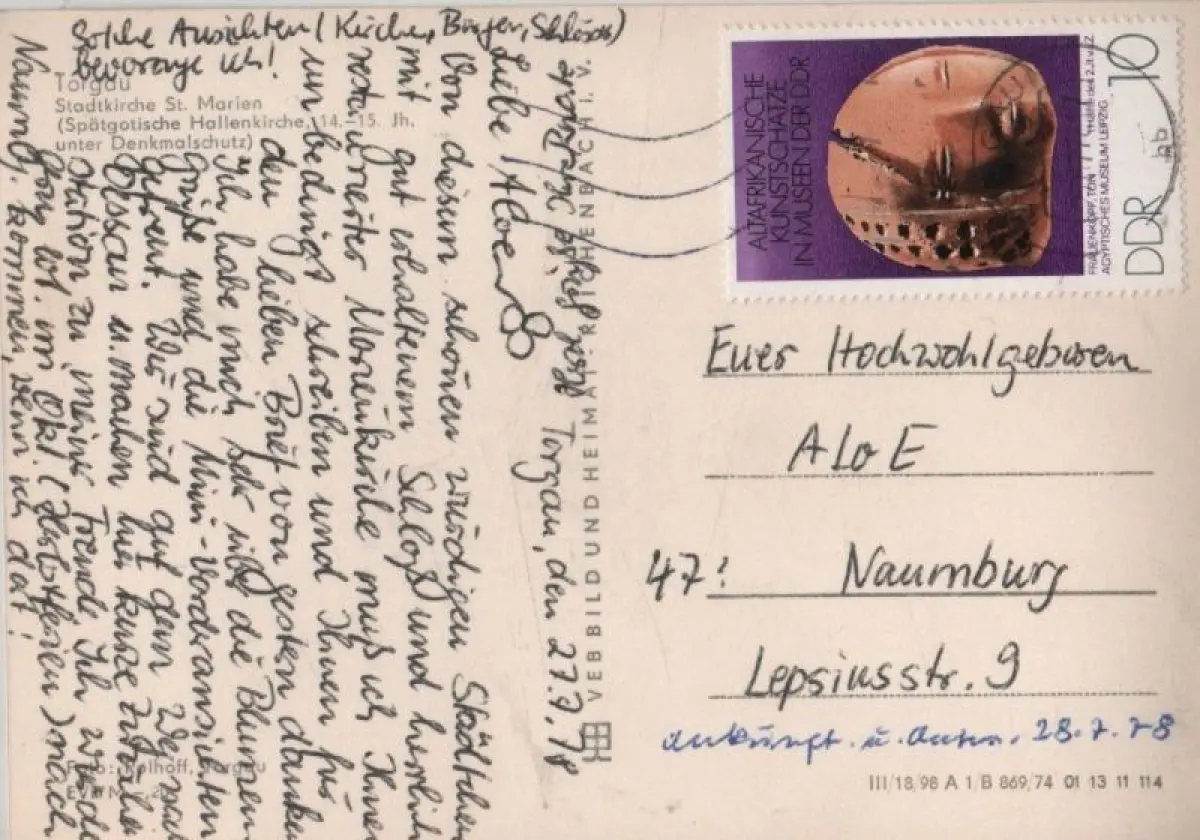 Solche Ansichten (Kirchen, Burgen, Schlösser)
bevorzuge ich!
Torgau
Stadtkirche St. Marien
(Spätgotische Hallenkirche, 14.–15. Jh.
unter Denkmalschutz)
Torgau, den 27.7.78
Liebe Aloe
Von diesem schönen würdigen Städtchen
mit gut erhaltenem Schloß und herrlich
restaurierter Marienkirche muß ich Ihnen
unbedingt schreiben und Ihnen für
den lieben Brief von gestern danken
Ich habe mich sehr über die Blumen
grüße und die Mini-Vordransichten
gefreut. Wir sind auf dem Weg nach
Dessau u. machen hier kurze
station zu meiner Freude. Ich werde
im Okt. (Herbstferien) nach
Naumbg. kommen, wenn ich dat!
Foto: Kolhoff, Torgau
VEB BILD UND HEIMAT · REICHENBACH I. V.
ALTAFRIKANISCHE
KUNSTSCHÄTZE
IN MUSEEN DER DDR
FRAUENKOPF, TON
ÄGYPTISCHES MUSEUM LEIPZIG
DDR 10
Euer Hochwohlgeboren
ALoE
47! Naumburg
Lepsiusstr. 9
Ankunft u. Antw. 28.7.78
III/18/98 A 1/B 869/74 01 13 11 114